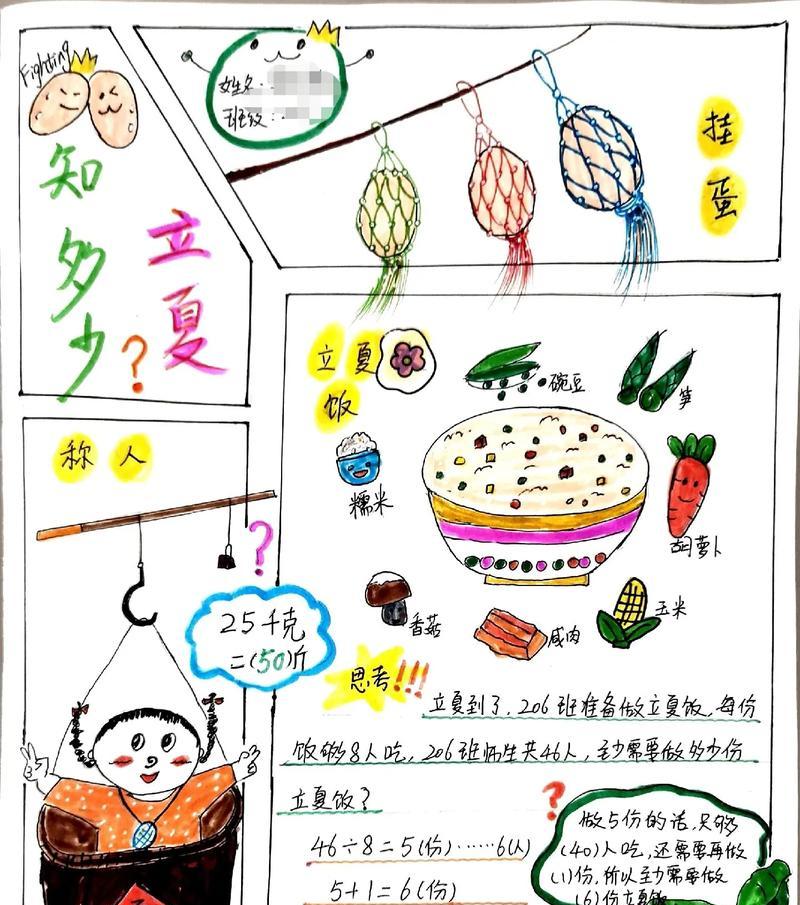 Fighting
知多少?
立夏
姓名:
班级:
挂蛋
称人
?
25千克
=(50)斤
立夏
饭
豌豆
笋
糯米
胡萝卜
香菇
咸肉
玉米
思考!!!
立夏到了,206班准备做立夏饭,每份
饭够8人吃,206班师生共46人,至少需要做多少份
立夏饭?
46÷8=5(份)……6(人)
5+1=6(份)
?
做5份的话,只够
(40)人吃,还需要再做
(1)份,所以至少需要做
(6)份立夏饭